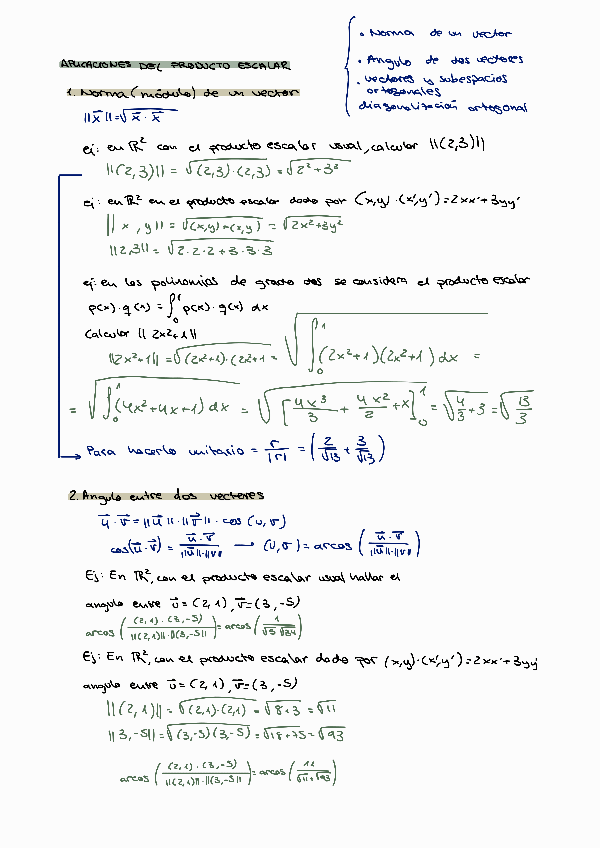 • Norma de un vector
• Angulo de dos vectores
• vectores y subespacios
ortogonales
diagonalización ortogonal
APLICACIONES DEL PRODUCTO ESCALAR
1. Norma (módulo) de un vector
||x⃗|| = √(x⃗ · x⃗)
ej: en ℝ² con el producto escalar usual, calcular ||(2,3)||
||(2,3)|| = √((2,3)·(2,3)) = √(2²+3²)
ej: en ℝ² en el producto escalar dado por (x,y)·(x',y') = 2xx'+3yy'
||x,y|| = √((x,y)·(x,y)) = √(2x²+3y²)
||2,3|| = √(2·2·2+3·3·3)
ej: en los polinomios de grado dos se considera el producto escalar
p(x)·q(x) = ∫₀¹ p(x)·q(x) dx
Calcular ||2x²+1||
||2x²+1|| = √((2x²+1)·(2x²+1) = √(∫₀¹(2x²+1)(2x²+1) dx) =
= √(∫₀¹(4x²+4x+1) dx) = √([4x³/3 + 4x²/2 + x]₀¹) = √(4/3+3) = √(13/3)
Para hacerlo unitario = r/|r| = (2/√13 + 3/√13)
2. Angulo entre dos vectores
u⃗ · v⃗ = ||u⃗|| · ||v⃗|| · cos (u,v)
cos(u⃗·v⃗) = u⃗·v⃗/||u||·||v|| → (u,v) = arcos (u⃗·v⃗/||u||·||v||)
Ej: En ℝ², con el producto escalar usual hallar el
angulo entre u⃗ = (2,1), v⃗ = (3,-5)
arcos ((2,1)·(3,-5)/||(2,1)||·||(3,-5||) = arcos (1/√5 √34)
Ej: En ℝ², con el producto escalar dado por (x,y)·(x',y') = 2xx'+3yy'
angulo entre u⃗ = (2,1), v⃗ = (3,-5)
||(2,1)|| = √((2,1)·(2,1)) = √(8+3) = √11
||3,-5|| = √((3,-5)(3,-5)) = √(18+75) = √93
arcos ((2,1)·(3,-5)/||(2,1)||·||(3,-5||) = arcos (11/√11·√93)